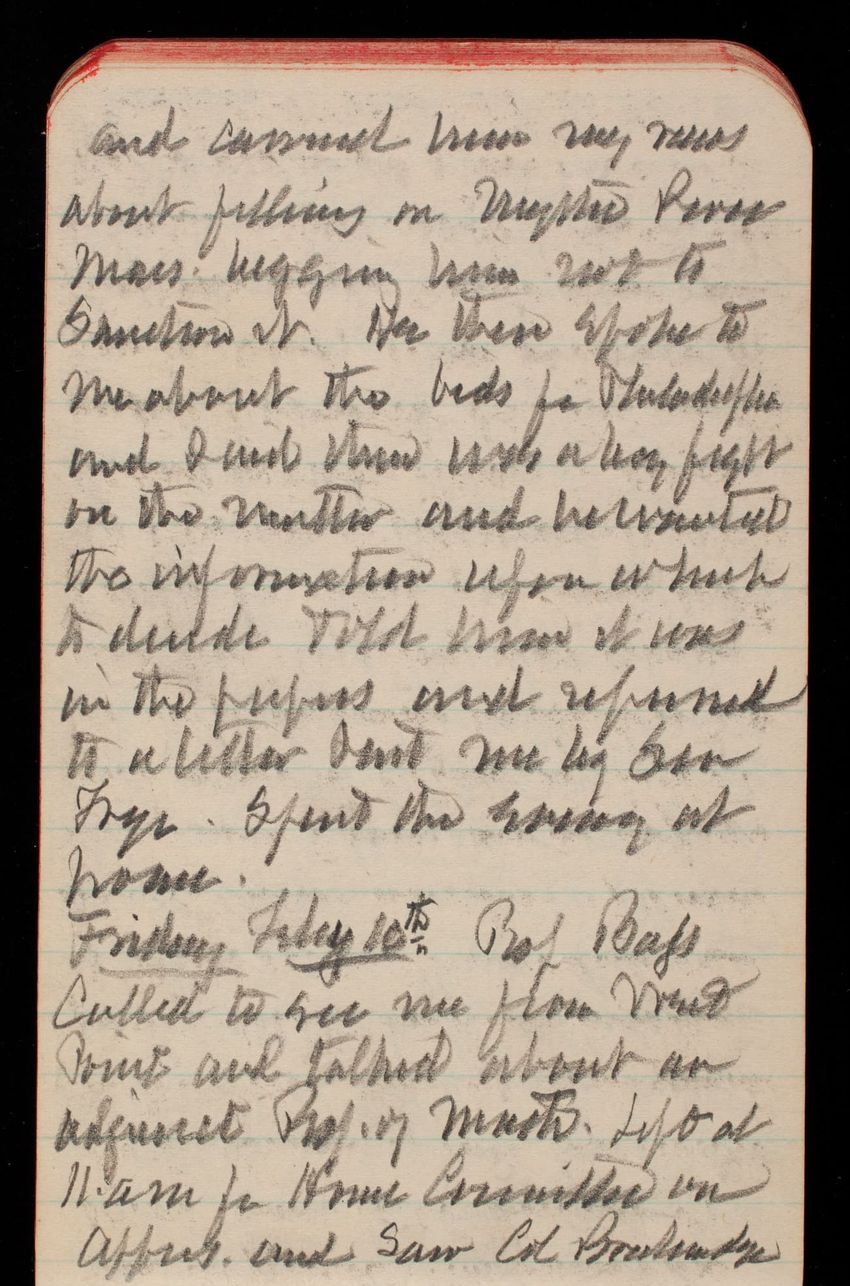 and carried him my views
about filling on Mystic River
Mass. begging him not to
Sanction it. He then spoke to
me about the beds for Philadelphia
and said there was a big fight
on the matter and he wanted
the information upon which
to decide Told him it was
in the papers and referred
to a letter sent me by Sen
Frye. Spent the evening at
home.
Friday Feby 10th Prof Bass
Called to see me from West
Point and talked about an
adjunct Prof. of Math. Left at
11. a m for House Committee on
Apprs. and Saw Col Breckenridge